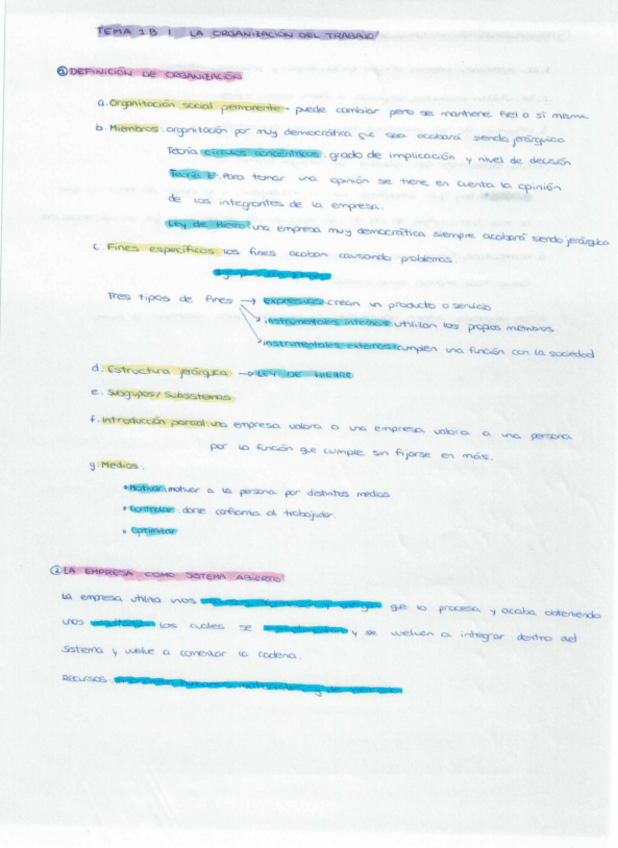 TEMA 1B | LA ORGANIZACIÓN DEL TRABAJO
① DEFINICIÓN DE ORGANIZACIÓN
a. Organización social permanente → puede cambiar pero se mantiene fiel a sí misma
b. Miembros: organización por muy democrática que sea acabará siendo jerárquica
Teoría círculos concéntricos: grado de implicación y nivel de decisión
Teoría Para tomar una opinión se tiene en cuenta la opinión
de los integrantes de la empresa.
Ley de Hierro: una empresa muy democrática siempre acabará siendo jerárquica
c. Fines específicos: los fines acaban causando problemas.
Tres tipos de fines → Expresivos: crean un producto o servicio
instrumentales internos: utilizan los propios miembros
instrumentales externos: cumplen una función con la sociedad
d. Estructura jerárquica → LEY DE HIERRO
e. Subgrupos/subsistemas
f. Introducción parcial: una empresa valora a una empresa valora a una persona
por la función que cumple sin fijarse en más.
g. Medios:
• Motivar: motivar a la persona por distintos medios
• Controlar: darle confianza al trabajador.
• Optimizar
② LA EMPRESA COMO SISTEMA ABIERTO
La empresa utiliza unos que lo procesa y acaba obteniendo
unos los cuales se y se vuelven a integrar dentro del
sistema y vuelve a comenzar la cadena.
RECURSOS: